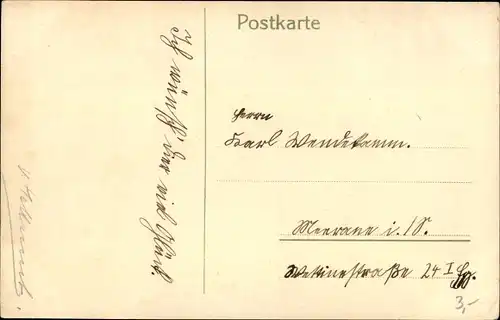 Postkarte
Ich wünsch' dir viel Glück.
Herrn
Karl Wendekamm.
Meerane i./S.
Wettinestraße 24 I
3,-